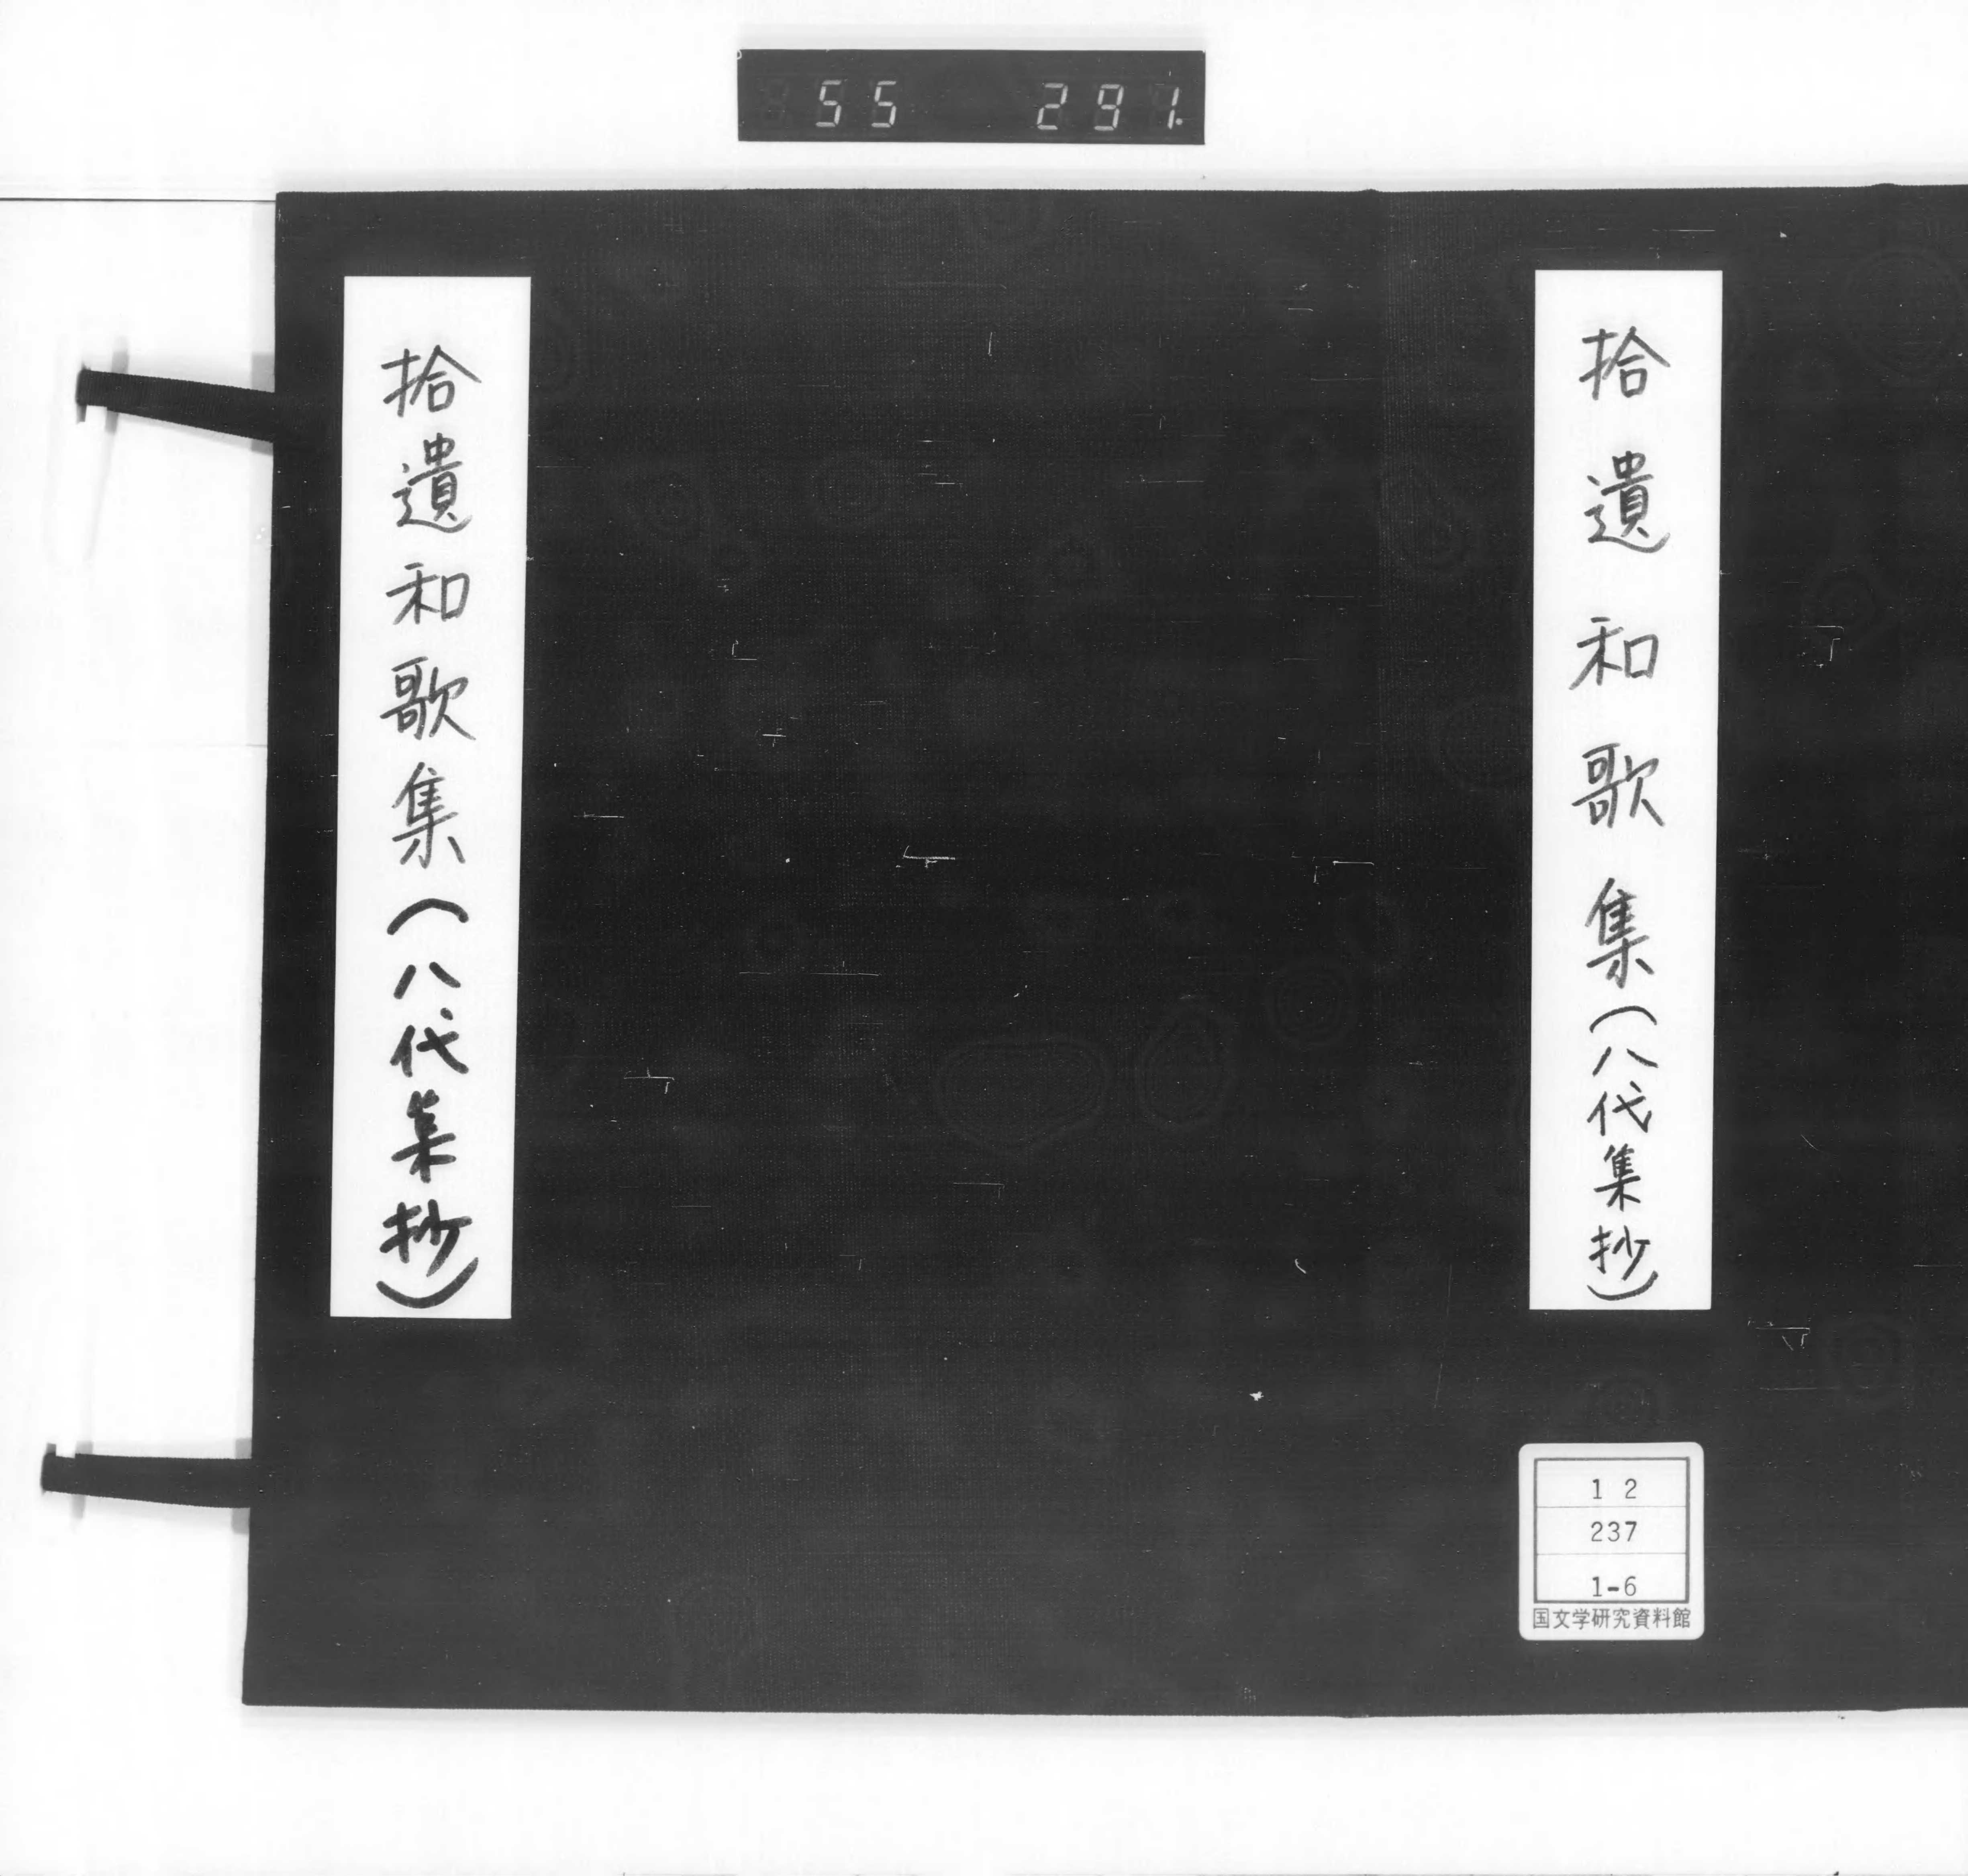 55 291.
拾遺和歌集(八代集抄)
拾遺和歌集(八代集抄)
1 2
237
1-6
国文学研究資料館